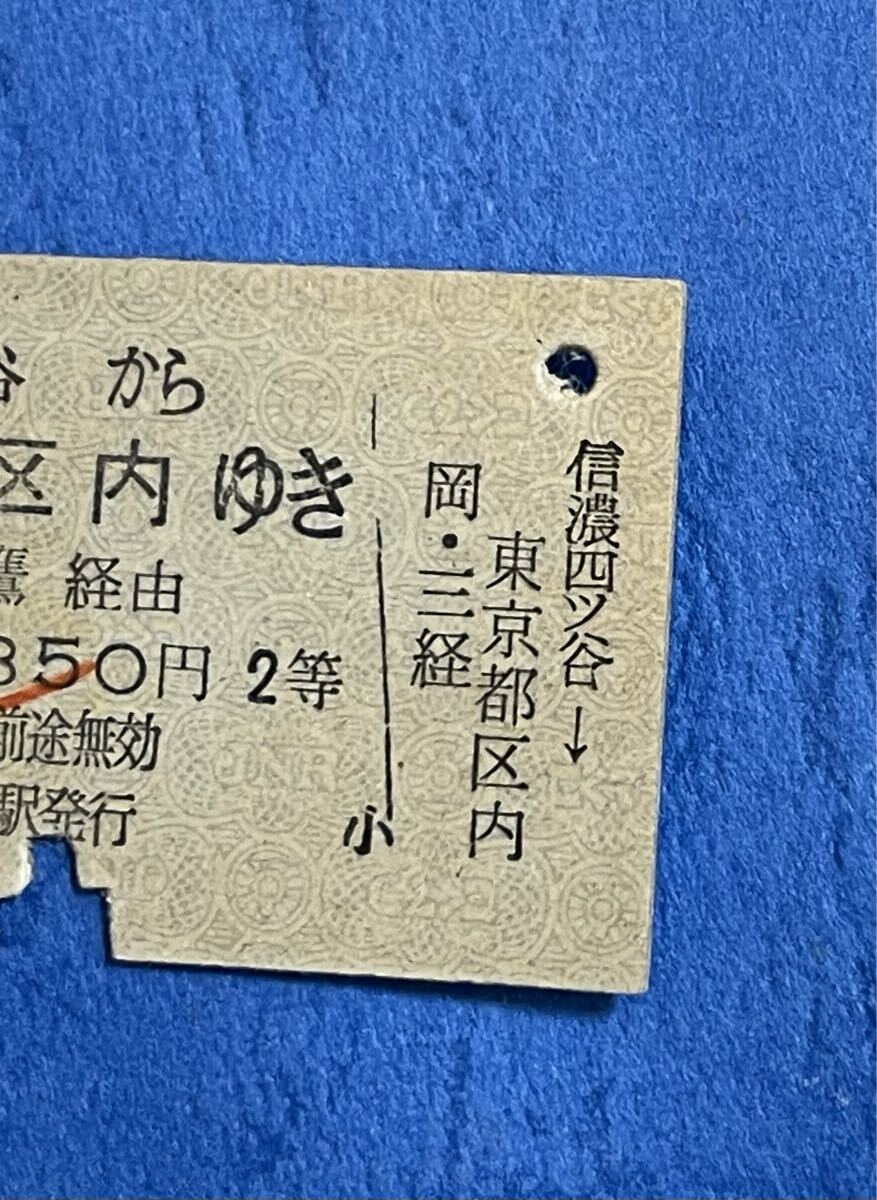 谷 から
区内ゆき
鷲 経由
350円 2等
前途無効
駅発行
小
信濃四ツ谷→
東京都区内
岡・三経